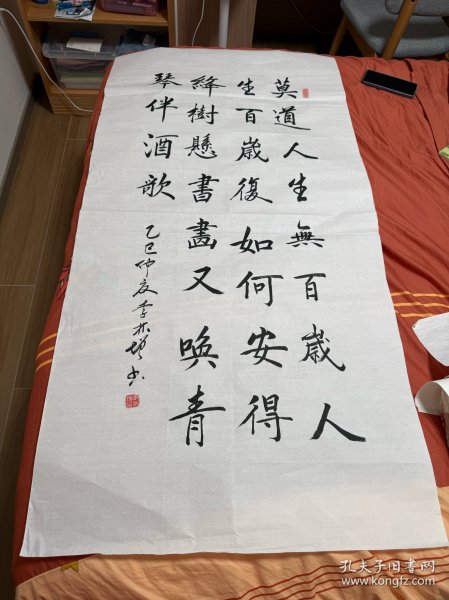 莫道人生無百歲人
生百歲復如何安得
絳樹懸書畫又喚青
琴伴酒歌
乙巳仲夏李
孔夫子旧书网
www.kongfz.com